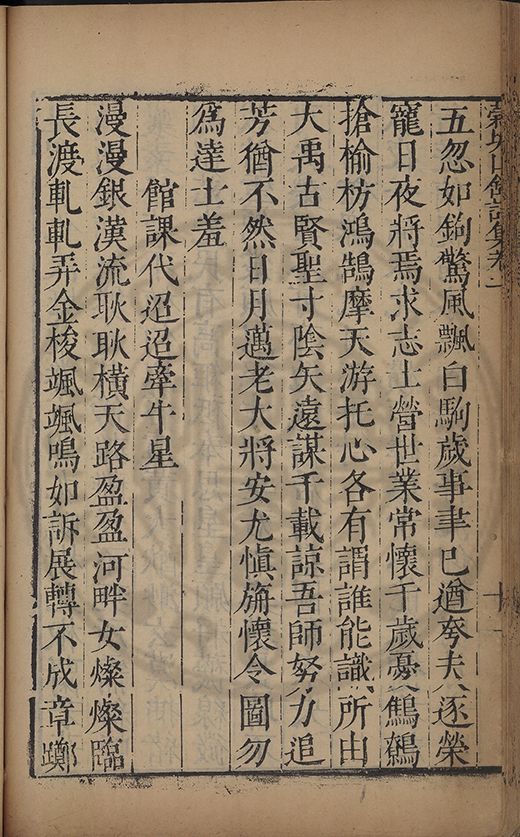 穀城山館詩集卷一
十一
五忽如鉤驚風飄白駒歲事聿已遒夸夫逐榮
寵日夜將焉求志士營世業常懷千歲憂鷦鷯
搶榆枋鴻鵠摩天游托心各有謂誰能識所由
大禹古賢聖寸陰矢遠謀千載諒吾師努力追
芳猶不然日月邁老大將安尤慎旃懷令圖勿
爲達士羞
館課代迢迢牽牛星
漫漫銀漢流耿耿橫天路盈盈河畔女燦燦臨
長渡軋軋弄金梭颯颯鳴如訴展轉不成章躑